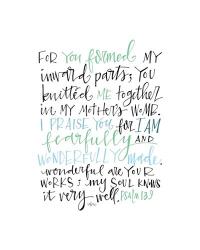 FOR YOU formed MY
inward parts; you
knitted ME together
in MY MOTHER'S WOMB.
I PRAISE YOU for I AM
fearfully AND
WONDERFULLY made.
wonderful are YOUR
WORKS; MY SOUL KNOWS
it very well. PSALM 139